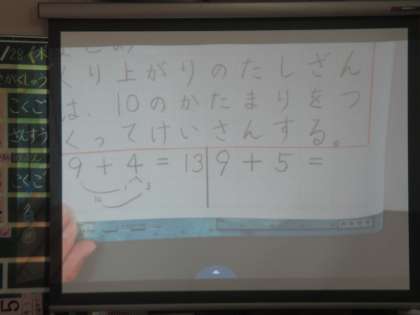 くり上がりのたしざん
は、10のかたまりをつ
くってけいさんする。
9+4=13
10
3
9+5=
28(木
こくご
さんすう
こくご